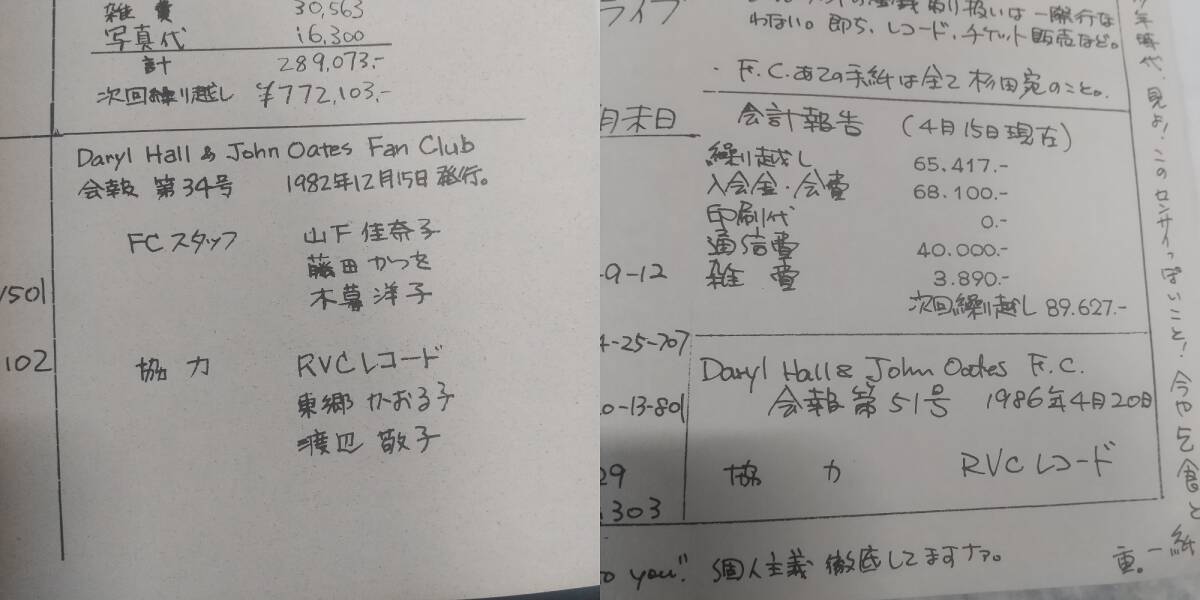 雑費 30,563
写真代 16,300
計 289,073.-
次回繰り越し ¥772,103.-
Daryl Hall & John Oates Fan Club
会報 第34号 1982年12月15日発行。
FCスタッフ 山下佳奈子
藤田かつを
木暮洋子
1501
102
協力 RVCレコード
東郷かおる子
渡辺敬子
ライブ
取り扱いは一際行な
わない。即ち、レコード、チケット販売など。
・F.C.あての手紙は全て杉田宛のこと。
月末日
会計報告 (4月15日現在)
繰り越し 65.417.-
入会金・会費 68.100.-
印刷代 0.-
通信費 40.000.-
雑費 3.890.-
次回繰り越し 89.627.-
-9-12
4-25-707
0-13-801
29
303
Daryl Hall & John Oates F.C.
会報第51号 1986年4月20日
協力 RVCレコード
o you". 個人主義徹底してますナァ。
年時代、見よ!このロンサイっぽいこと!今や乞食と
一紙
重。